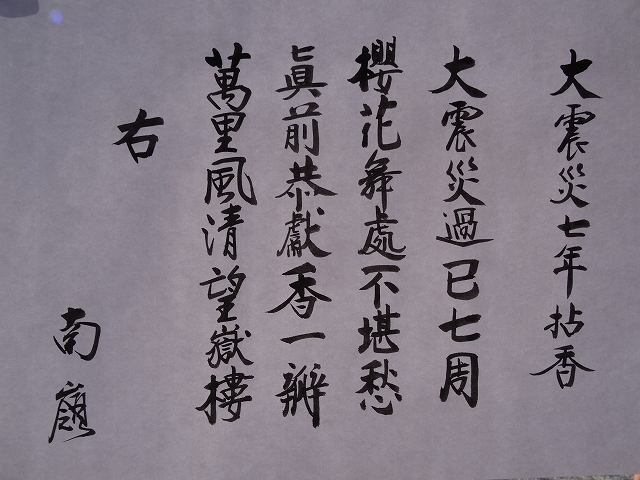 大震災七年拈香
大震災過已七周
櫻花舞處不堪愁
眞前恭獻香一瓣
萬里風清望嶽樓
右
南嶺